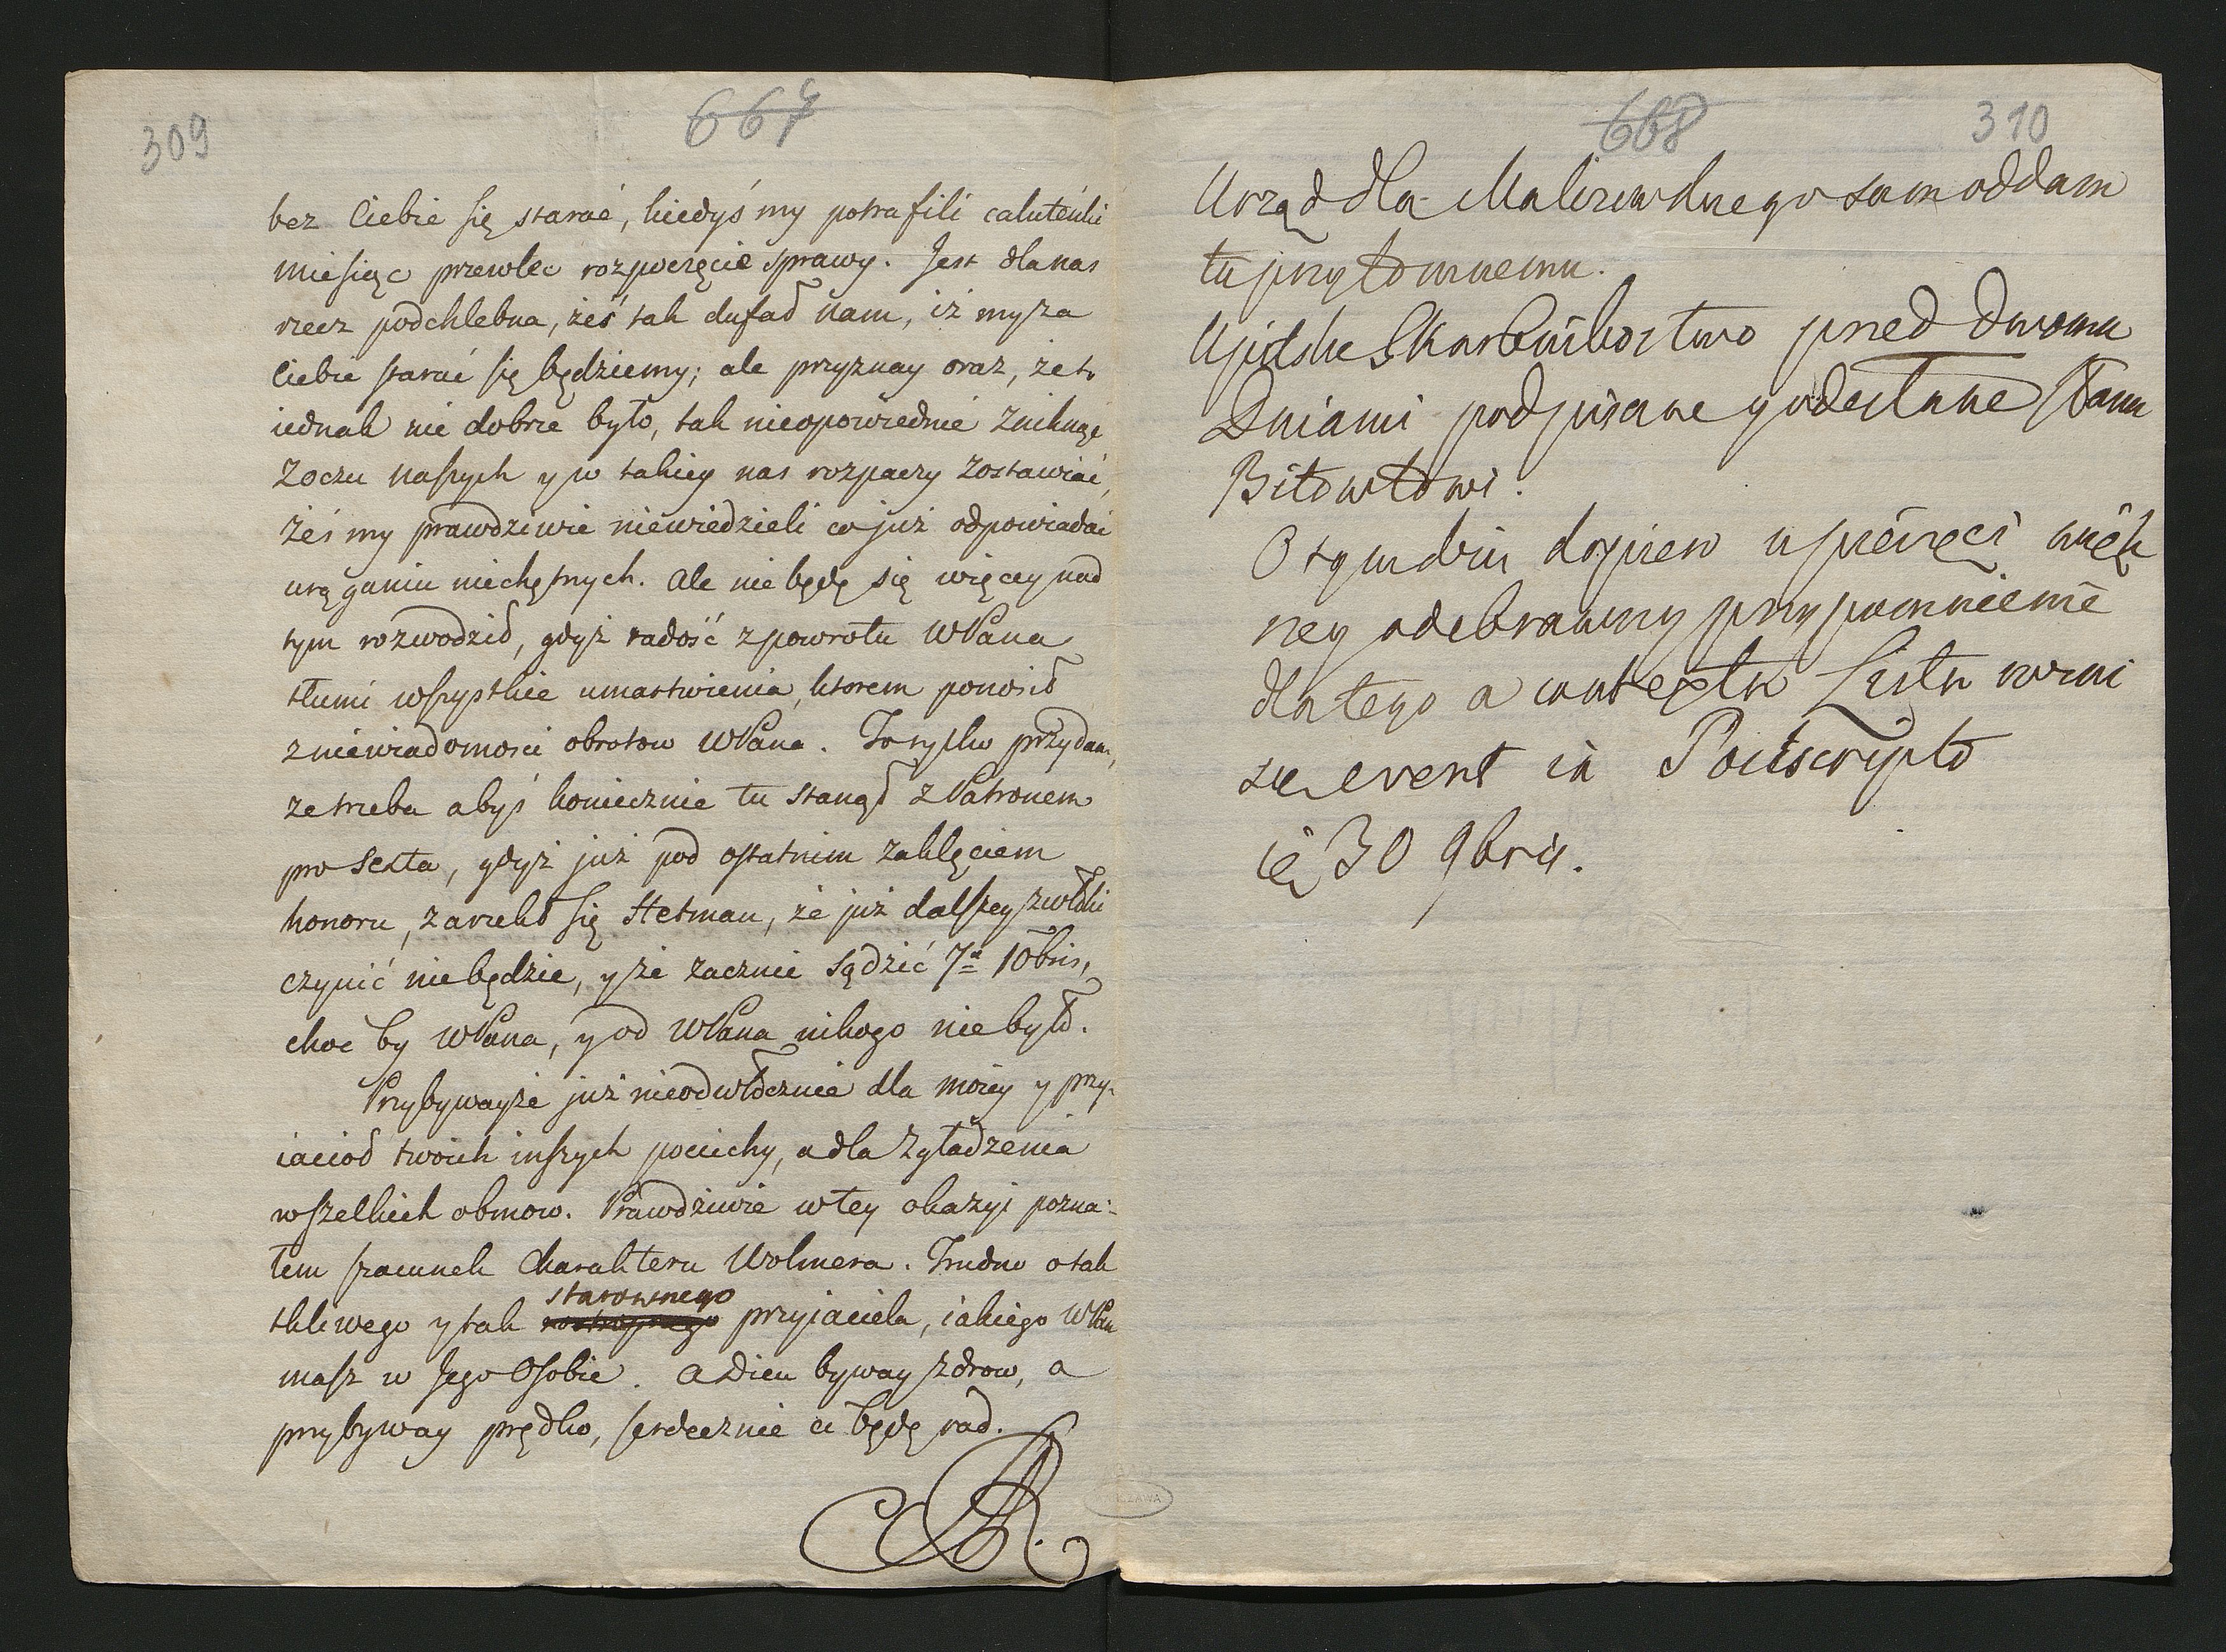 309
667
bez Ciebie się starać, kiedyś my potrafili caluteńki
miesiąc przewlec rozpoczęcie sprawy. Jest dla nas
rzecz podchlebna, żeś tak dufał nam, iż my za
Ciebie starać się będziemy; ale przyznay oraz, że to
iednak nie dobrze było, tak nieopowiednie zniknąć
z oczu naszych y w takiey nas rozpaczy zostawiać,
żeś my prawdziwie niewiedzieli co już odpowiadać
urąganiu niechętnych. Ale nie będę się więcey nad
tym rozwodził, gdyż radość z powrotu WPana
tłumi wszystkie umartwienia, ktorem ponosił
z niewiadomosci obrotow WPana. To tylko przydam,
że trzeba abyś koniecznie tu stanął z Patronem
pro sexta, gdyż już pod ostatnim zaklęciem
honoru, zarzekł się Hetman, że już dalszey zwłoki
czynić niebędzie, y że zacznie sądzić 7a 10bris,
choc by WPana, y od WPana nikogo nie było.
Przybywayże już nieodwłocznie dla moiey y przy-
iacioł twoich inszych pociechy, a dla zgładzenia
wszelkich obmow. Prawdziwie w tey okazyi pozna-
łem szacunek charakteru Wolmera. Trudno o tak
starownego
tkliwego y tak przyjaciela, iakiego WPan
masz w Jego Osobie. Adieu byway zdrow, a
przybyway prędko, serdecznie ci będę rad.
668
310
Urząd dla sam oddam
tu przytomnemu.
Upitskie Skarbnikostwo przed dwoma
Dniami podpisane y odesłane Panu
Bitowtowi.
O tym dopiero u pieczęci
ney odebrawszy przypomnienie
dla tego a contextu Listu
event in Postscripto
30 9bris.